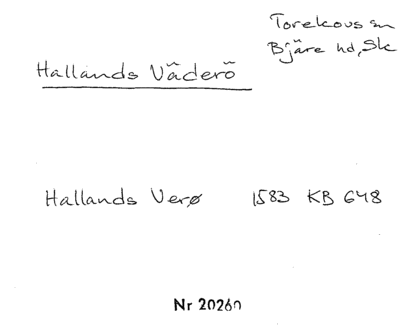 Torekovs sn
Bjäre hd, Sk
Hallands Väderö
Hallands Verø 1583 KB 648
Nr 20260